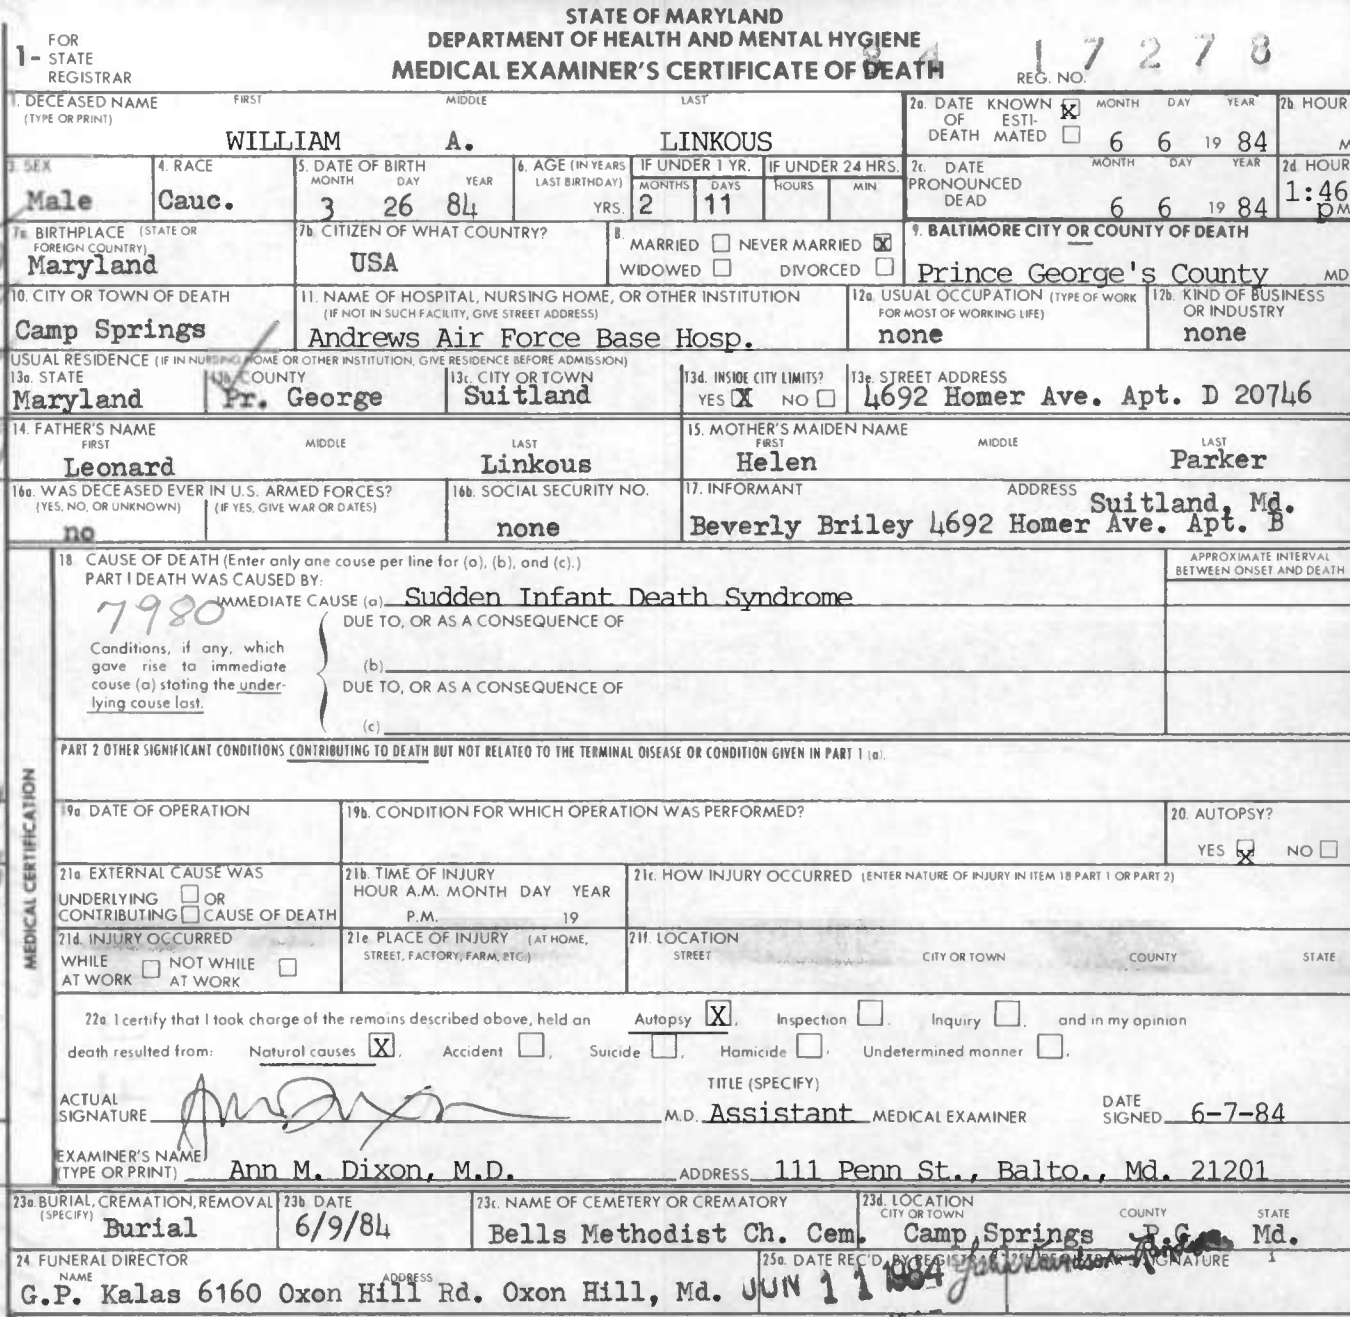 STATE OF MARYLAND
DEPARTMENT OF HEALTH AND MENTAL HYGIENE
MEDICAL EXAMINER'S CERTIFICATE OF DEATH
1- FOR STATE REGISTRAR
REG. NO. 84 17278
1. DECEASED NAME (TYPE OR PRINT) FIRST MIDDLE LAST
WILLIAM A. LINKOUS
2a. DATE OF DEATH KNOWN X ESTIMATED MONTH DAY YEAR
6 6 19 84
2b. HOUR M
3. SEX
Male
4. RACE
Cauc.
5. DATE OF BIRTH MONTH DAY YEAR
3 26 84
6. AGE (IN YEARS LAST BIRTHDAY) YRS.
IF UNDER 1 YR. MONTHS DAYS
2 11
IF UNDER 24 HRS. HOURS MIN.
2c. DATE PRONOUNCED DEAD MONTH DAY YEAR
6 6 19 84
2d. HOUR
1:46 pM
7a. BIRTHPLACE (STATE OR FOREIGN COUNTRY)
Maryland
7b. CITIZEN OF WHAT COUNTRY?
USA
8. MARRIED NEVER MARRIED X
WIDOWED DIVORCED
9. BALTIMORE CITY OR COUNTY OF DEATH
Prince George's County MD
10. CITY OR TOWN OF DEATH
Camp Springs
11. NAME OF HOSPITAL, NURSING HOME, OR OTHER INSTITUTION
(IF NOT IN SUCH FACILITY, GIVE STREET ADDRESS)
Andrews Air Force Base Hosp.
12a. USUAL OCCUPATION (TYPE OF WORK FOR MOST OF WORKING LIFE)
none
12b. KIND OF BUSINESS OR INDUSTRY
none
USUAL RESIDENCE (IF IN NURSING HOME OR OTHER INSTITUTION, GIVE RESIDENCE BEFORE ADMISSION)
13a. STATE
Maryland
13b. COUNTY
Pr. George
13c. CITY OR TOWN
Suitland
13d. INSIDE CITY LIMITS?
YES X NO
13e. STREET ADDRESS
4692 Homer Ave. Apt. D 20746
14. FATHER'S NAME FIRST MIDDLE LAST
Leonard Linkous
15. MOTHER'S MAIDEN NAME FIRST MIDDLE LAST
Helen Parker
16a. WAS DECEASED EVER IN U.S. ARMED FORCES?
(YES, NO, OR UNKNOWN) (IF YES, GIVE WAR OR DATES)
no
16b. SOCIAL SECURITY NO.
none
17. INFORMANT ADDRESS
Suitland, Md.
Beverly Briley 4692 Homer Ave. Apt. B
MEDICAL CERTIFICATION
18 CAUSE OF DEATH (Enter only one cause per line for (a), (b), and (c).)
APPROXIMATE INTERVAL BETWEEN ONSET AND DEATH
PART I DEATH WAS CAUSED BY:
7980
IMMEDIATE CAUSE (a) Sudden Infant Death Syndrome
DUE TO, OR AS A CONSEQUENCE OF
Conditions, if any, which
gave rise to immediate
cause (a) stating the under-
lying cause last.
(b)
DUE TO, OR AS A CONSEQUENCE OF
(c)
PART 2 OTHER SIGNIFICANT CONDITIONS CONTRIBUTING TO DEATH BUT NOT RELATED TO THE TERMINAL DISEASE OR CONDITION GIVEN IN PART 1 (a).
19a DATE OF OPERATION
19b. CONDITION FOR WHICH OPERATION WAS PERFORMED?
20. AUTOPSY?
YES X NO
21a EXTERNAL CAUSE WAS
UNDERLYING OR
CONTRIBUTING CAUSE OF DEATH
21b. TIME OF INJURY
HOUR A.M. MONTH DAY YEAR
P.M. 19
21c. HOW INJURY OCCURRED (ENTER NATURE OF INJURY IN ITEM 18 PART 1 OR PART 2)
21d. INJURY OCCURRED
WHILE AT WORK NOT WHILE AT WORK
21e PLACE OF INJURY (AT HOME, STREET, FACTORY, FARM, ETC.)
21f. LOCATION
STREET CITY OR TOWN COUNTY STATE
22a I certify that I took charge of the remains described above, held an Autopsy X, Inspection, Inquiry, and in my opinion
death resulted from: Natural causes X, Accident, Suicide, Homicide, Undetermined manner.
ACTUAL SIGNATURE Ann Dixon M.D.
TITLE (SPECIFY) Assistant MEDICAL EXAMINER
DATE SIGNED 6-7-84
EXAMINER'S NAME (TYPE OR PRINT) Ann M. Dixon, M.D.
ADDRESS 111 Penn St., Balto., Md. 21201
23a. BURIAL, CREMATION, REMOVAL (SPECIFY)
Burial
23b. DATE
6/9/84
23c. NAME OF CEMETERY OR CREMATORY
Bells Methodist Ch. Cem.
23d. LOCATION CITY OR TOWN COUNTY STATE
Camp Springs P.G. Md.
24 FUNERAL DIRECTOR
NAME ADDRESS
G.P. Kalas 6160 Oxon Hill Rd. Oxon Hill, Md.
25a. DATE REC'D. BY REGISTRAR
JUN 11 1984
SIGNATURE